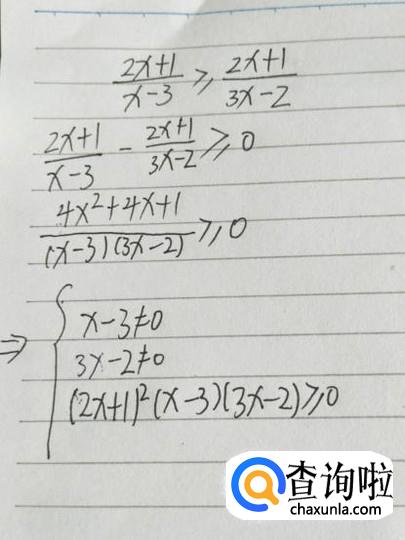 (2x+1)/(x-3) ≥ (2x+1)/(3x-2)
(2x+1)/(x-3) - (2x+1)/(3x-2) ≥ 0
(4x²+4x+1)/((x-3)(3x-2)) ≥ 0
⇒ { x-3≠0
3x-2≠0
(2x+1)²(x-3)(3x-2)≥0
查询啦
chaxunla.com